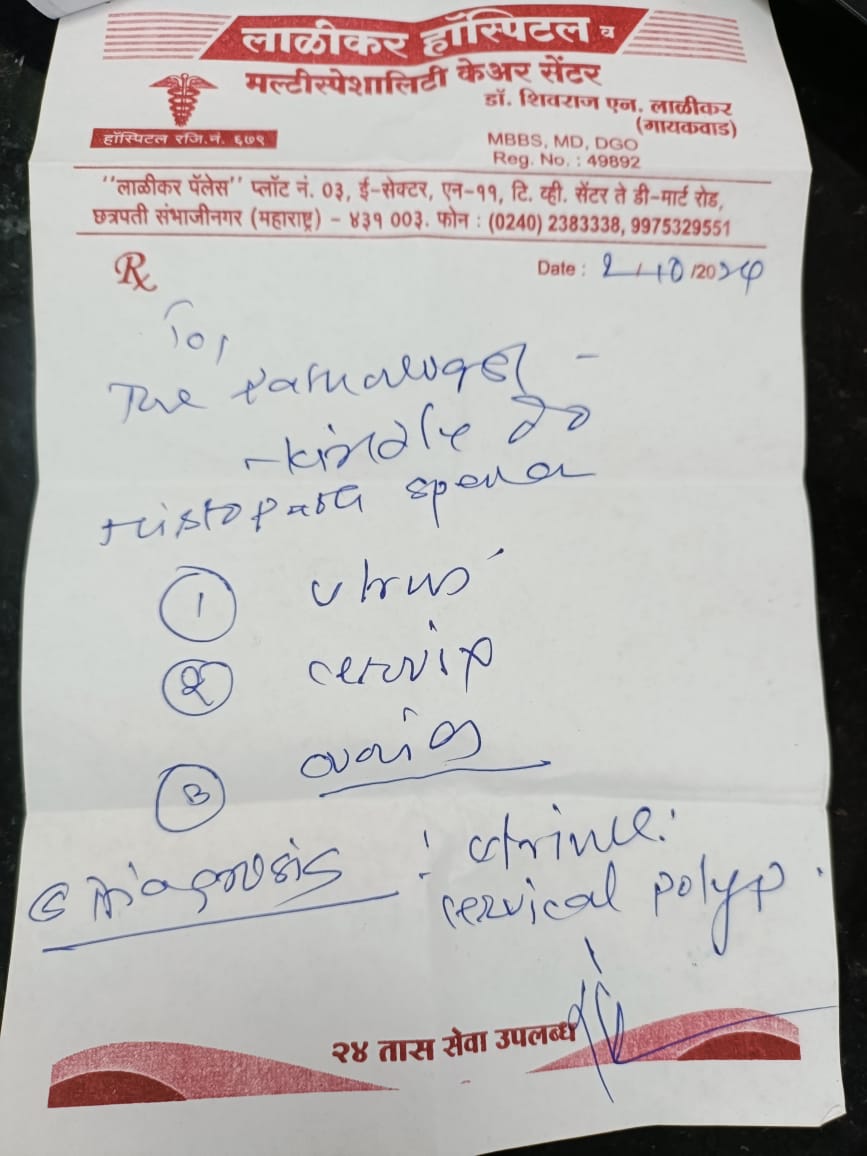 लाळीकर हॉस्पिटल व
मल्टीस्पेशालिटी केअर सेंटर
डॉ. शिवराज एन. लाळीकर
(गायकवाड)
हॉस्पिटल रजि.नं. ६७९
MBBS, MD, DGO
Reg. No. : 49892
"लाळीकर पॅलेस" प्लॉट नं. 03, ई-सेक्टर, एन-११, टि. व्ही. सेंटर ते डी-मार्ट रोड,
छत्रपती संभाजीनगर (महाराष्ट्र) - ४३१ 003. फोन : (0240) 2383338, 9975329551
Rx
Date : 2/10/2024
To,
The
- kindly do
Histopath
① utrus
② cervix
③
Diagnosis :
cervical polyp.
२४ तास सेवा उपलब्ध